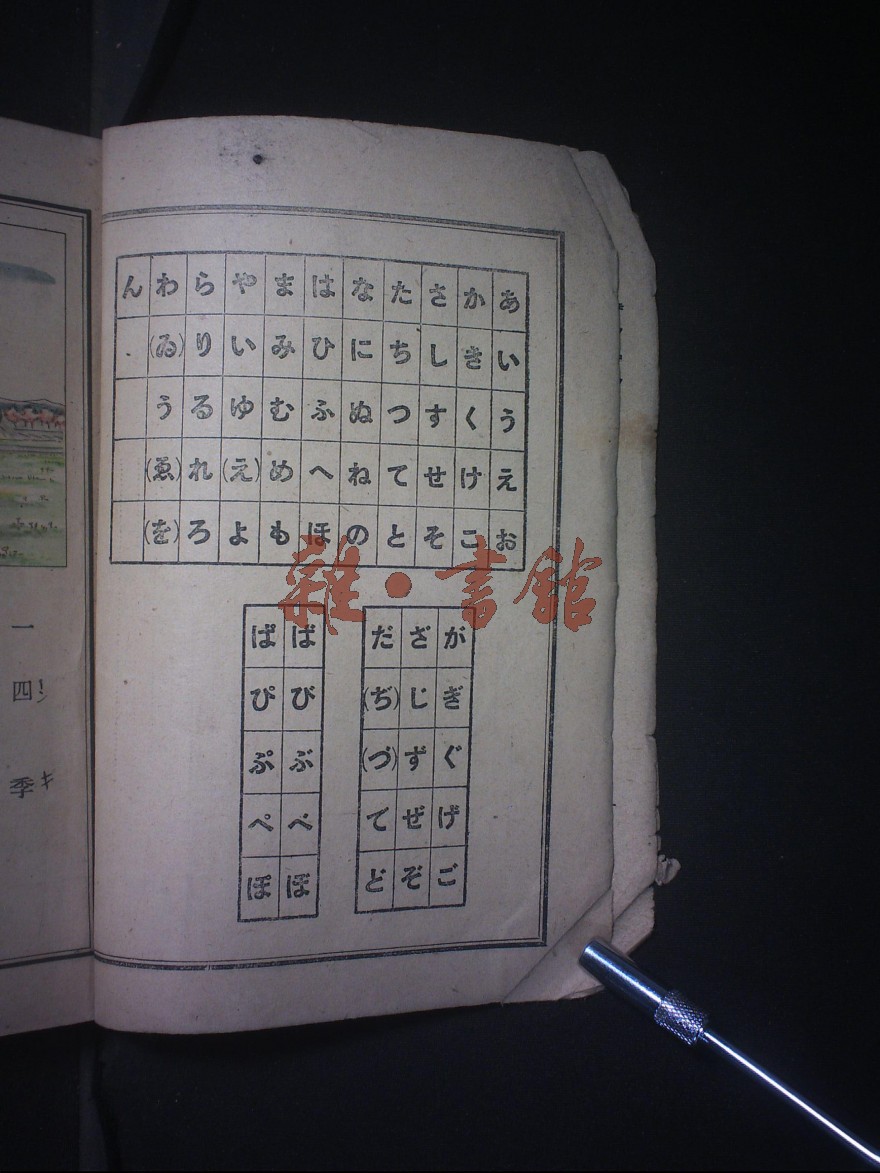 あいうえお
かきくけこ
さしすせそ
たちつてと
なにぬねの
はひふへほ
まみむめも
やいゆ(え)よ
らりるれろ
わ(ゐ)う(ゑ)(を)
ん
がぎぐげご
ざじずぜぞ
だ(ぢ)(づ)でど
ばびぶべぼ
ぱぴぷぺぽ
雜・書館
一 四季
シキ